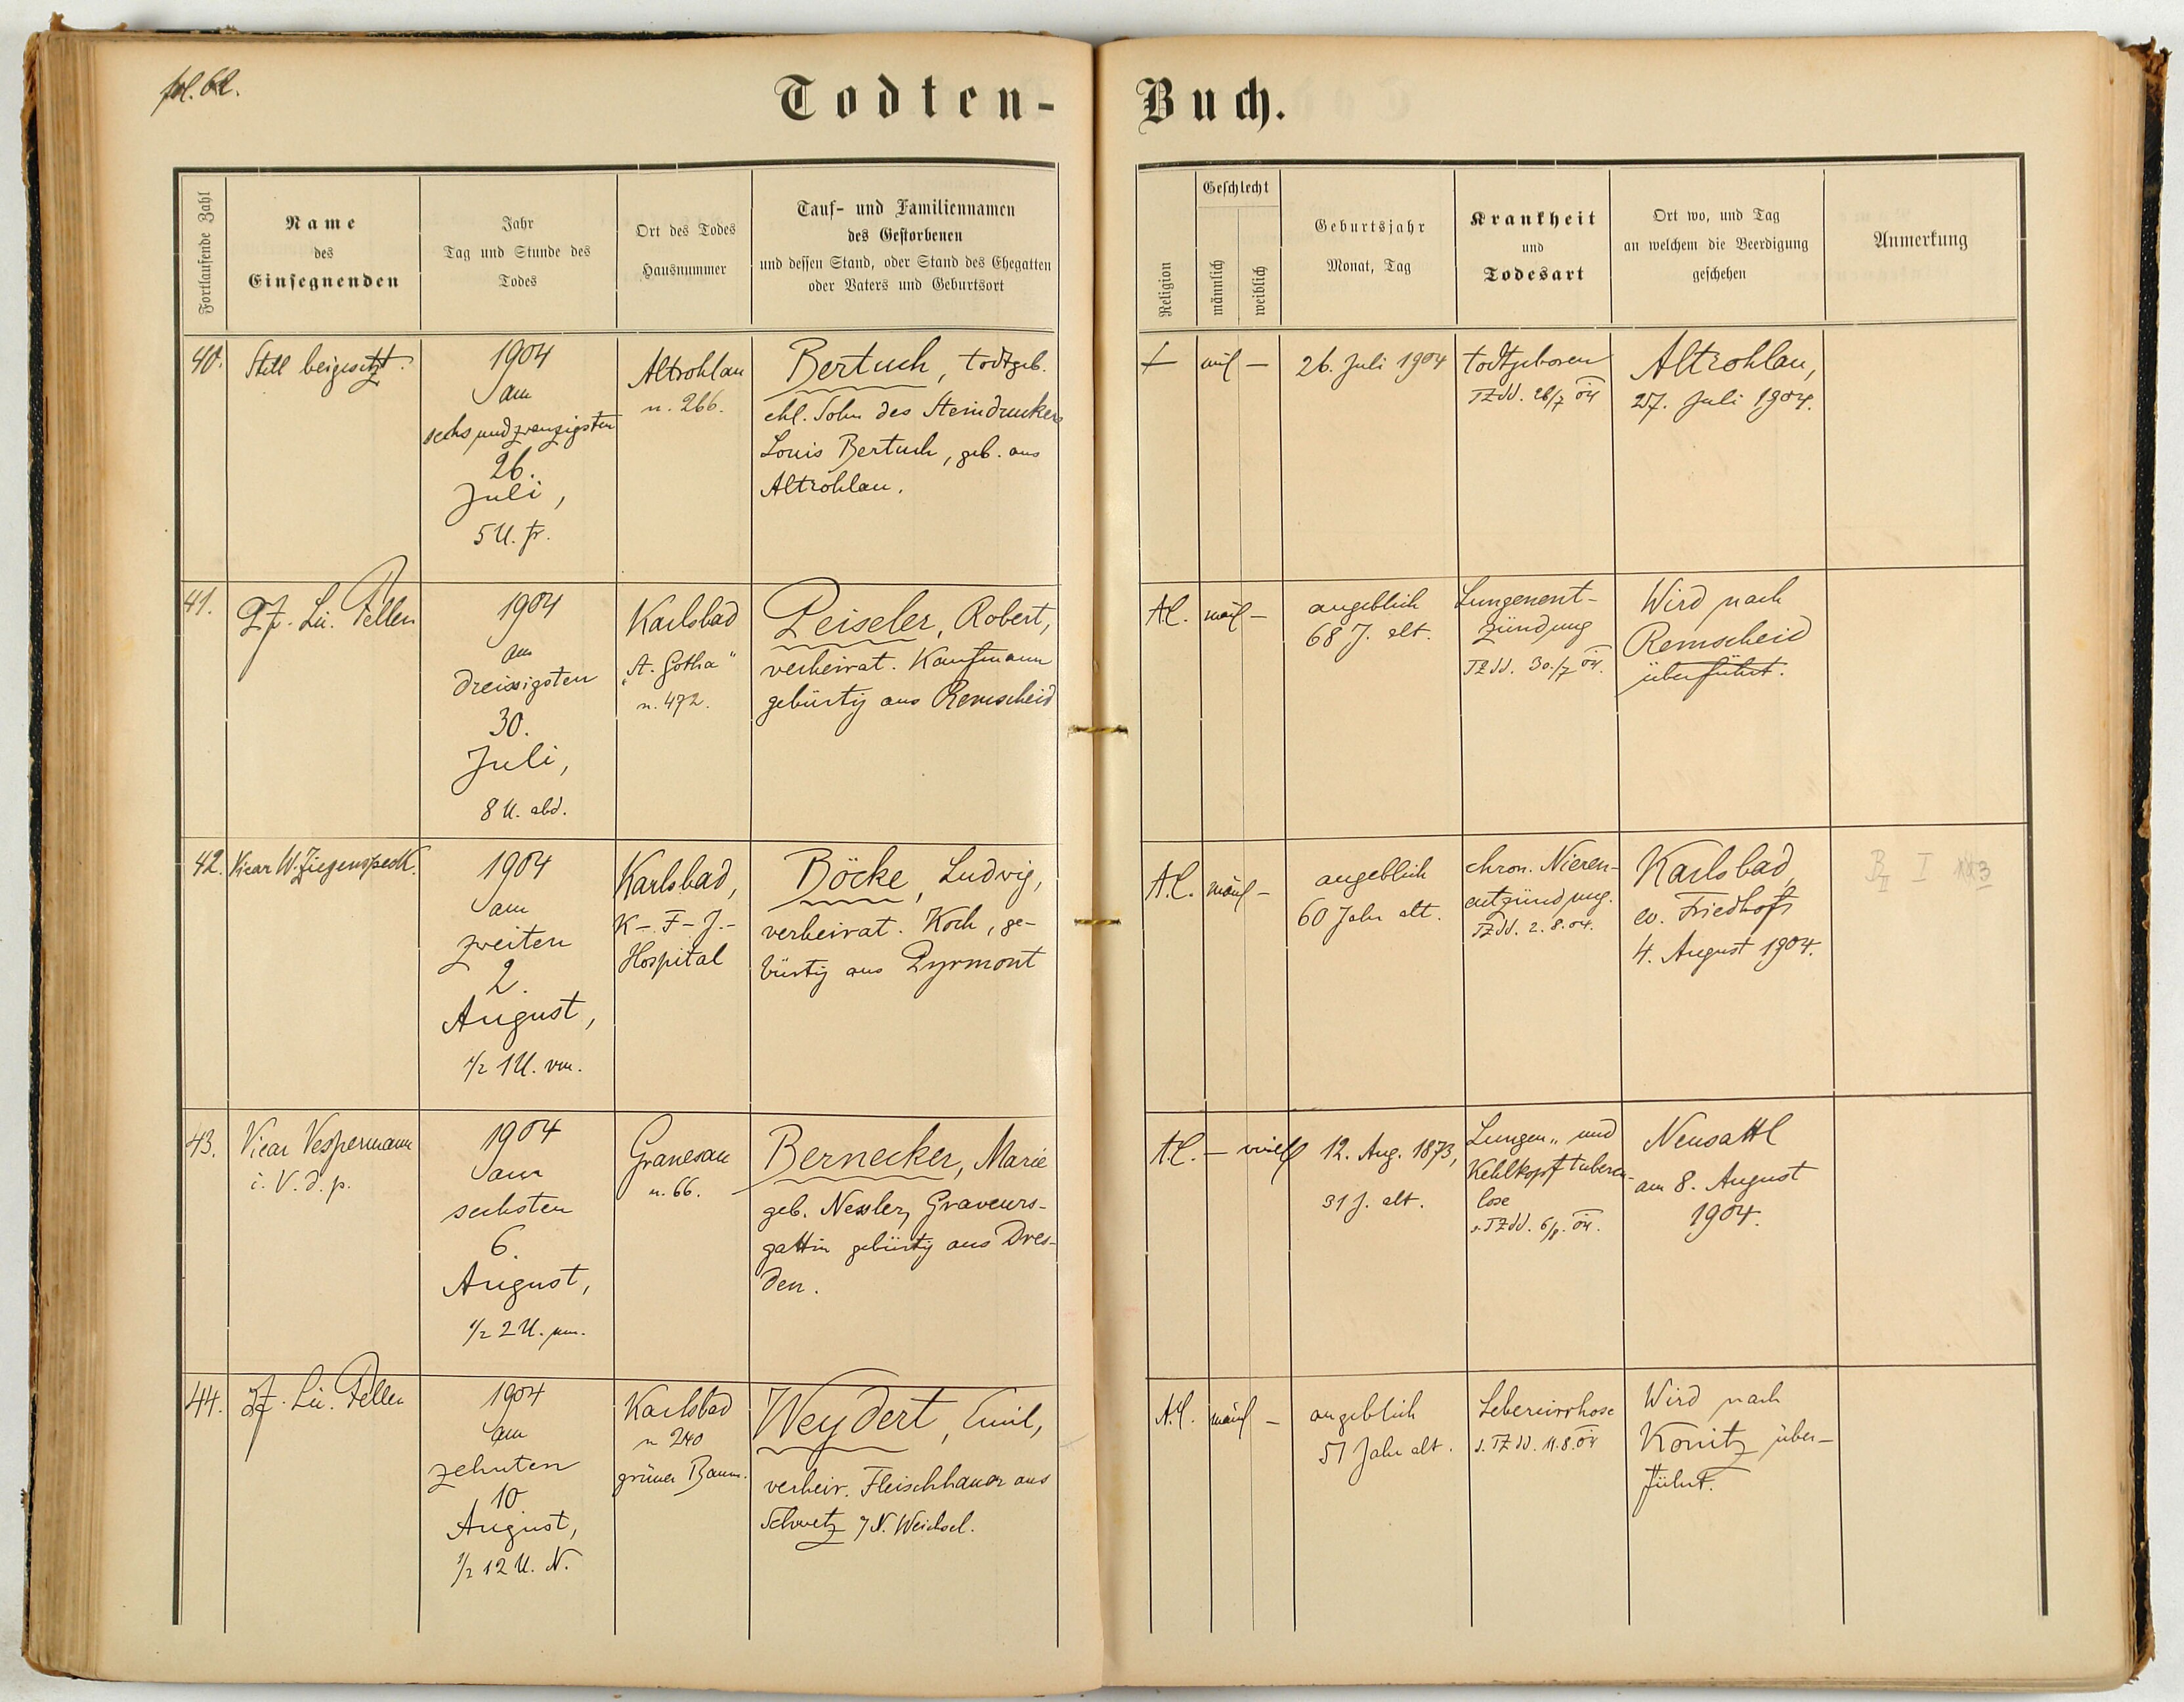 fol. 62.
Todten-Buch.
Fortlaufende Zahl
Name
des
Einsegnenden
Jahr
Tag und Stunde des
Todes
Ort des Todes
Hausnummer
Tauf- und Familiennamen
des Gestorbenen
und dessen Stand, oder Stand des Ehegatten
oder Vaters und Geburtsort
Religion
Geschlecht
männlich
weiblich
Geburtsjahr
Monat, Tag
Krankheit
und
Todesart
Ort wo, und Tag
an welchem die Beerdigung
geschehen
Anmerkung
40.
Still beigesetzt.
1904
am
sechsundzwanzigsten
26.
Juli,
5 U. fr.
Altrohlau
n. 266.
Bertuch, todtgeb.
ehl. Sohn des Steindruckers
Louis Bertuch, geb. aus
Altrohlau.
26. Juli 1904
todtgeboren
TZdd. 26/7 04
Altrohlau,
27. Juli 1904.
41.
Pf. Lic. Fellen
1904
am
dreissigsten
30.
Juli,
8 U. abd.
Karlsbad
"St. Gotha"
n. 472.
Peiseler, Robert,
verheirat. Kaufmann
gebürtig aus Remscheid
A.C.
männl —
angeblich
68 J. alt.
Lungenent-
zündung
TZdd. 30./7 04.
Wird nach
Remscheid
überführt.
42.
Vicar W. Ziegenspeck.
1904
am
zweiten
2.
August,
1/2 1 U. vm.
Karlsbad,
K-F-J.-
Hospital
Böcke, Ludwig,
verheirat. Koch, ge-
bürtig aus Pyrmont
A.C.
männl —
angeblich
60 Jahr alt.
chron. Nieren-
entzündung.
TZdd. 2.8.04.
Karlsbad,
ev. Friedhof
4. August 1904.
43.
Vicar Vespermann
i. V. d. p.
1904
am
sechsten
6.
August,
1/2 2 U. nm.
Granesau
n. 66.
Bernecker, Marie
geb. Nessler, Graveurs-
gattin gebürtig aus Dres-
den.
A.C.
— weibl
12. Aug. 1873,
31 J. alt.
Lungen- und
Kehlkopftubercu-
lose
s. TZdd. 6/8. 04.
Neusattl
am 8. August
1904.
44.
Pf. Lic. Fellen
1904
am
zehnten
10.
August,
1/2 12 U. N.
Karlsbad
n 240
grüner Baum.
Weydert, Emil,
verheir. Fleischhauer aus
Schwetz Weichsel.
A.C.
männl —
angeblich
51 Jahr alt.
Lebercirrhose
s. TZdd. 11.8.04
Wird nach
Konitz über-
führt.